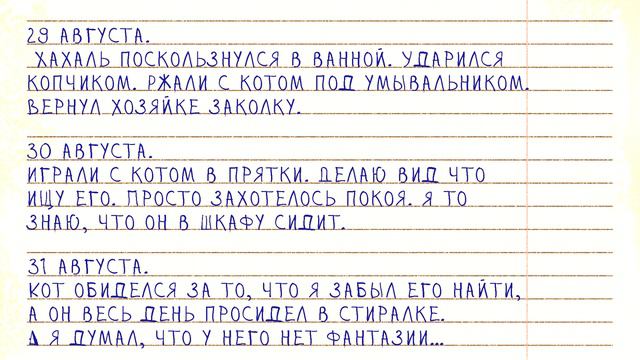 29 АВГУСТА.
ХАХАЛЬ ПОСКОЛЬЗНУЛСЯ В ВАННОЙ. УДАРИЛСЯ
КОПЧИКОМ. РЖАЛИ С КОТОМ ПОД УМЫВАЛЬНИКОМ.
ВЕРНУЛ ХОЗЯЙКЕ ЗАКОЛКУ.
30 АВГУСТА.
ИГРАЛИ С КОТОМ В ПРЯТКИ. ДЕЛАЮ ВИД ЧТО
ИЩУ ЕГО. ПРОСТО ЗАХОТЕЛОСЬ ПОКОЯ. Я ТО
ЗНАЮ, ЧТО ОН В ШКАФУ СИДИТ.
31 АВГУСТА.
КОТ ОБИДЕЛСЯ ЗА ТО, ЧТО Я ЗАБЫЛ ЕГО НАЙТИ,
А ОН ВЕСЬ ДЕНЬ ПРОСИДЕЛ В СТИРАЛКЕ.
А Я ДУМАЛ, ЧТО У НЕГО НЕТ ФАНТАЗИИ...